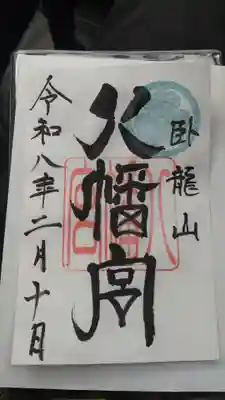 臥龍山
八幡宮
令和八年二月十日